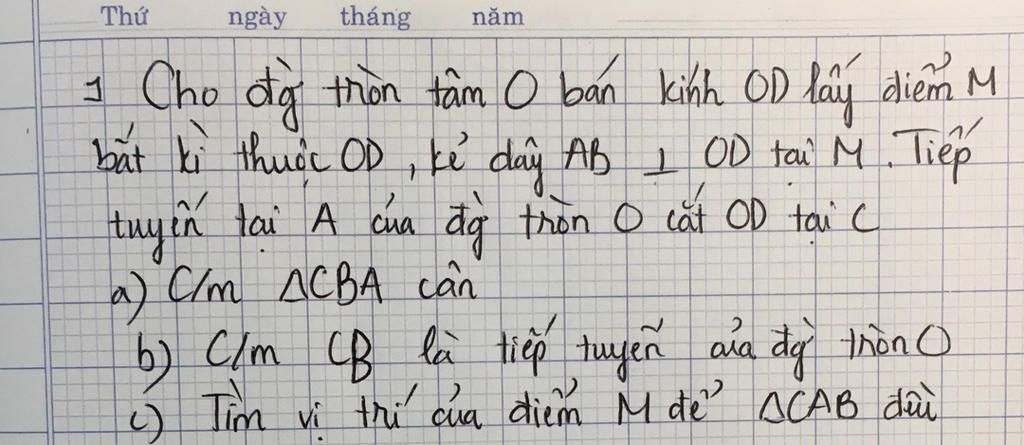 Thứ ngày tháng năm
1 Cho đg̀ tròn tâm O bán kính OD lấy điểm M
bất kì thuộc OD, kẻ dây AB ⊥ OD tại M. Tiếp
tuyến tại A của đg̀ tròn O cắt OD tại C
a) C/m ΔCBA cân
b) C/m CB là tiếp tuyến của đg̀ tròn O
c) Tìm vị trí của điểm M để ΔCAB đều